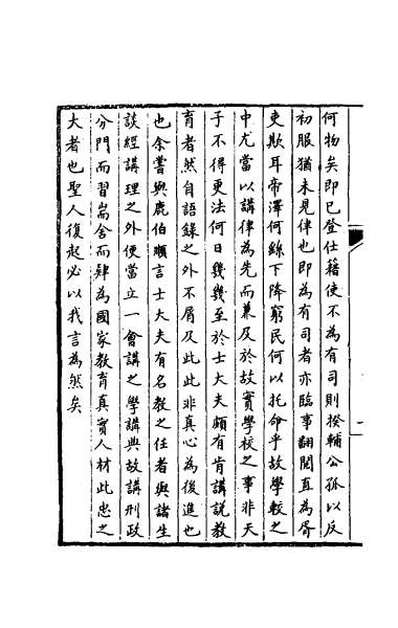 何物矣即已登仕籍使不為有司則揆輔公孤以反
初服猶未見律也即為有司者亦臨事翻閱直為胥
吏欺耳帝澤何繇下降窮民何以托命乎故學較之
中尤當以講律為先而兼及於故實學校之事非天
子不得更法何日幾幾至於士大夫頗有肯講說教
育者然自語錄之外不屑及此此非真心為後進也
余嘗與鹿伯順言士大夫有名教之任者與諸生
談經講理之外便當立一會講之學講典故講刑政
分門而習耑舍而肄為國家教育真實人材此忠之
大者也聖人復起必以我言為然矣